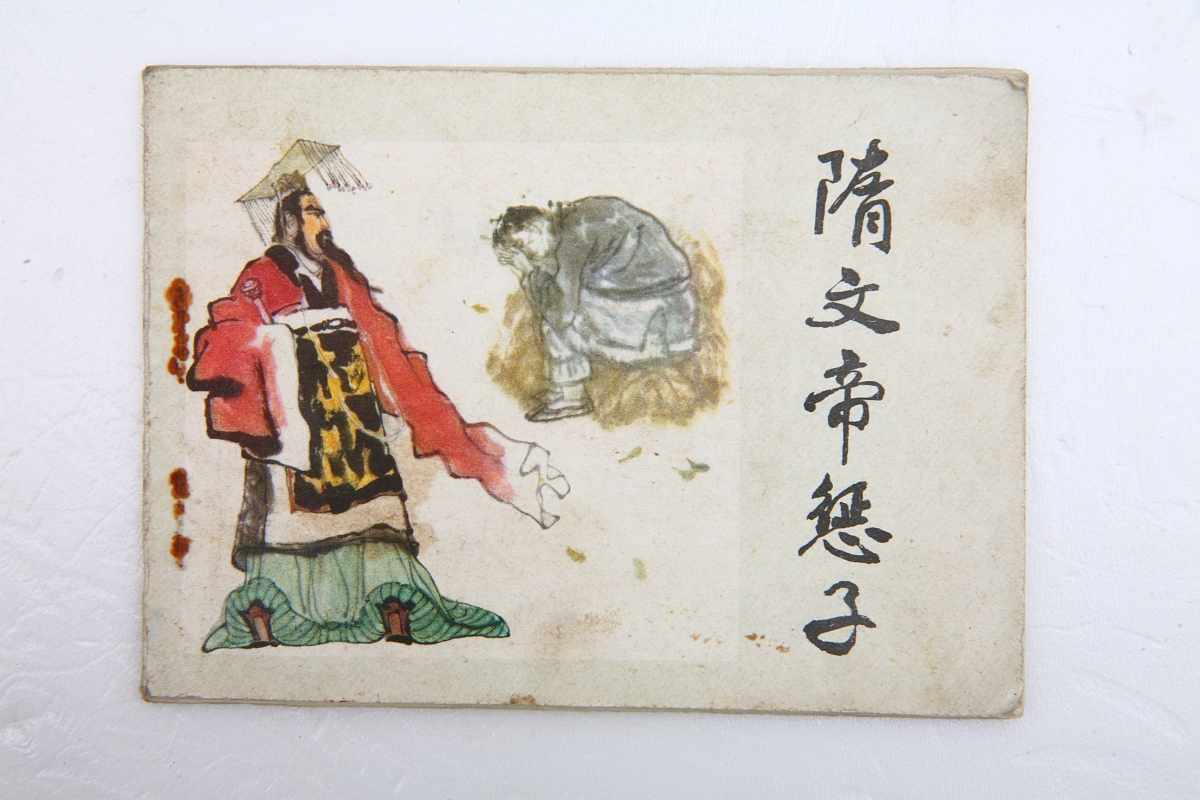 隋文帝惩子